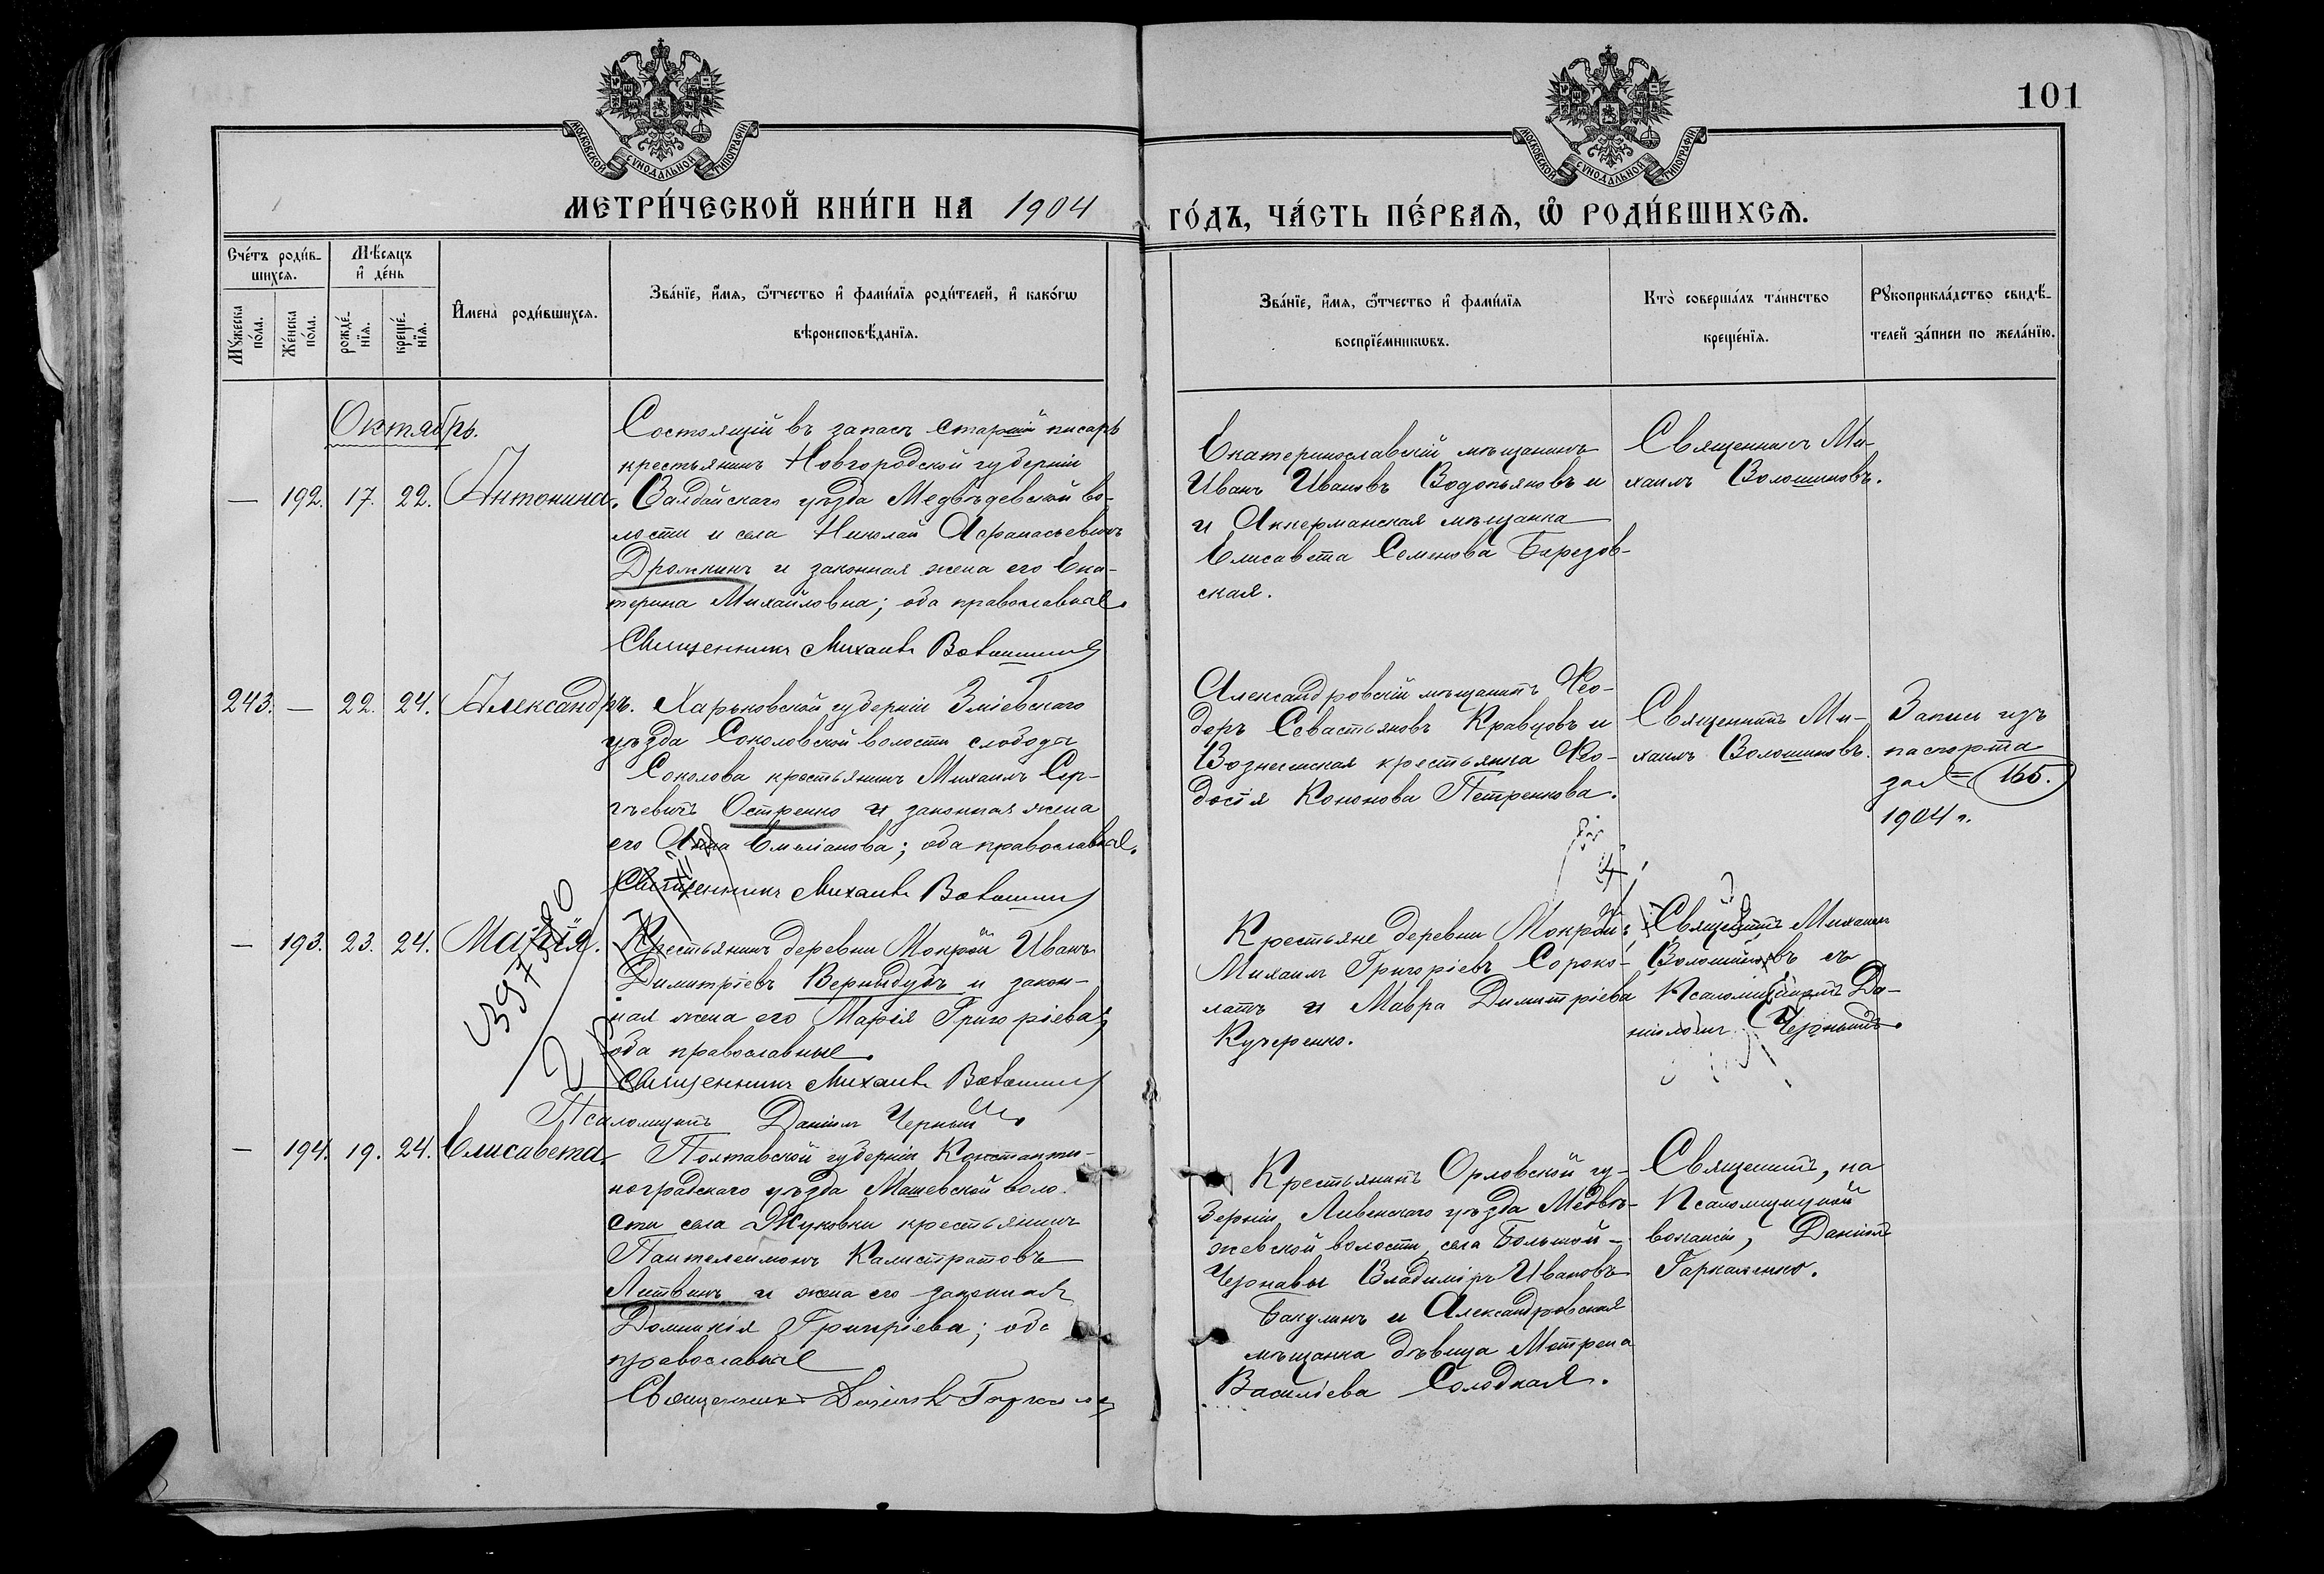 101
МОСКОВСКОЙ СѴНОДАЛЬНОЙ ТИПОГРАФІИ
МОСКОВСКОЙ СѴНОДАЛЬНОЙ ТИПОГРАФІИ
МЕТРИ́ЧЕСКОЙ КНИ́ГИ НА 1904
ГО́ДЪ, ЧА́СТЬ ПЕ́РВАѦ, Ѽ РОДИ́ВШИХСѦ.
Сче́тъ роди́в-
шихсѧ.
Мꙋ́жеска по́ла.
Же́нска по́ла.
Мѣ́сѧцъ
и҆ де́нь
рожде́-
нїѧ.
креще́-
нїѧ.
И҆мена̀ роди́вшихсѧ.
Зва́нїе, и҆́мѧ, ѻ҆́тчество и҆ фами́лїѧ роди́телей, и҆ како́гѡ
вѣроисповѣ́данїѧ.
Зва́нїе, и҆́мѧ, ѻ҆́тчество и҆ фами́лїѧ
воспрїе́мникѡвъ.
Кто̀ соверша́лъ та́инство
креще́нїѧ.
Рꙋкоприкла́дство свидѣ́-
телей за́писи по жела́нїю.
Октябрь.
— 192. 17. 22. Антонина.
Состоящій въ запасѣ старшій писарь
крестьянинъ Новгородской губерніи
Валдайскаго уѣзда Медвѣдевской во-
лости и села Николай Афанасьевичъ
Дрожкинъ и законная жена его Ека-
терина Михайловна; оба православные.
Священникъ Михаилъ Волошинов
Екатеринославскій мѣщанинъ
Иванъ Ивановъ Водопьяновъ и
и Аккерманская мѣщанка
Елисавета Семенова Березов-
ская.
Священникъ Ми-
хаилъ Волошиновъ.
243. — 22. 24. Александръ.
Харьковской губерніи Зміевскаго
уѣзда Соколовской волости слободы
Соколова крестьянинъ Михаилъ Сер-
гѣевичъ Остренко и законная жена
его Анна Емеліанова; оба православные.
Священникъ Михаилъ Волошинов
Александровскій мѣщанинъ Ѳео-
доръ Севастьяновъ Кравцовъ и
Вознесенская крестьянка Ѳео-
досія Кононова Петренкова.
Священникъ Ми-
хаилъ Волошиновъ.
Запись изъ
паспорта
за № 165.
1904 г.
— 193. 23. 24. Марія.
Крестьянинъ деревни Мокрой Иванъ
Димитріевъ Вернидубъ и закон-
ная жена его Марія Григоріева;
оба православные.
Священникъ Михаилъ Волошинов
Псаломщикъ Даніилъ Черный
Крестьяне деревни Мокрой:
Михаилъ Григоріевъ Сороко-
латъ и Мавра Димитріева
Кучеренко.
Священникъ Михаилъ
Волошиновъ съ
Псаломщикомъ Да-
ніиломъ Чернымъ.
— 194. 19. 24. Елисавета.
Полтавской губерніи Константи-
ноградскаго уѣзда Машевской воло-
сти села Жуковки крестьянинъ
Пантелеимонъ Калистратовъ
Литвинъ и жена его законная
Домникія Григоріева; оба
православные
Священникъ Даніилъ
Крестьянинъ Орловской гу-
берніи Ливенскаго уѣзда Медвѣ-
жевской волости, села Большой-
Чернавы Владиміръ Ивановъ
Бакулинъ и Александровская
мѣщанка дѣвица Матрена
Василіева Солодкая.
Священникъ, на
Псаломщицкой
вокансіи, Даніилъ
Гаркаленко.